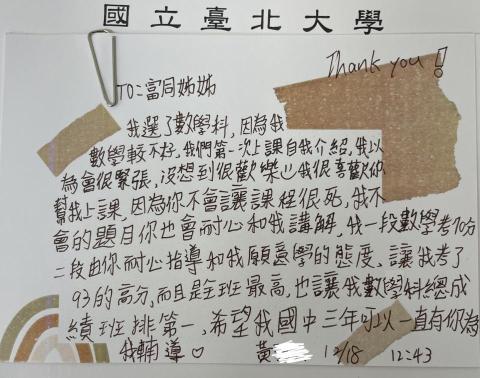 國立臺北大學
Thank you!
TO:富同姊姊
我選了數學科,因為我
數學較不好,我們第一次上課自我介紹,我以
為會很緊張,沒想到很歡樂,我很喜歡你
幫我上課,因為你不會讓課程很死,我不
會的題目你也會耐心和我講解,我一段數學考70分
二段由你耐心指導和我願意學的態度,讓我考了
93的高分,而且是全班最高,也讓我數學科總成
績班排第一,希望我國中三年可以一直有你為
我輔導♡
黃 12/18 12:43